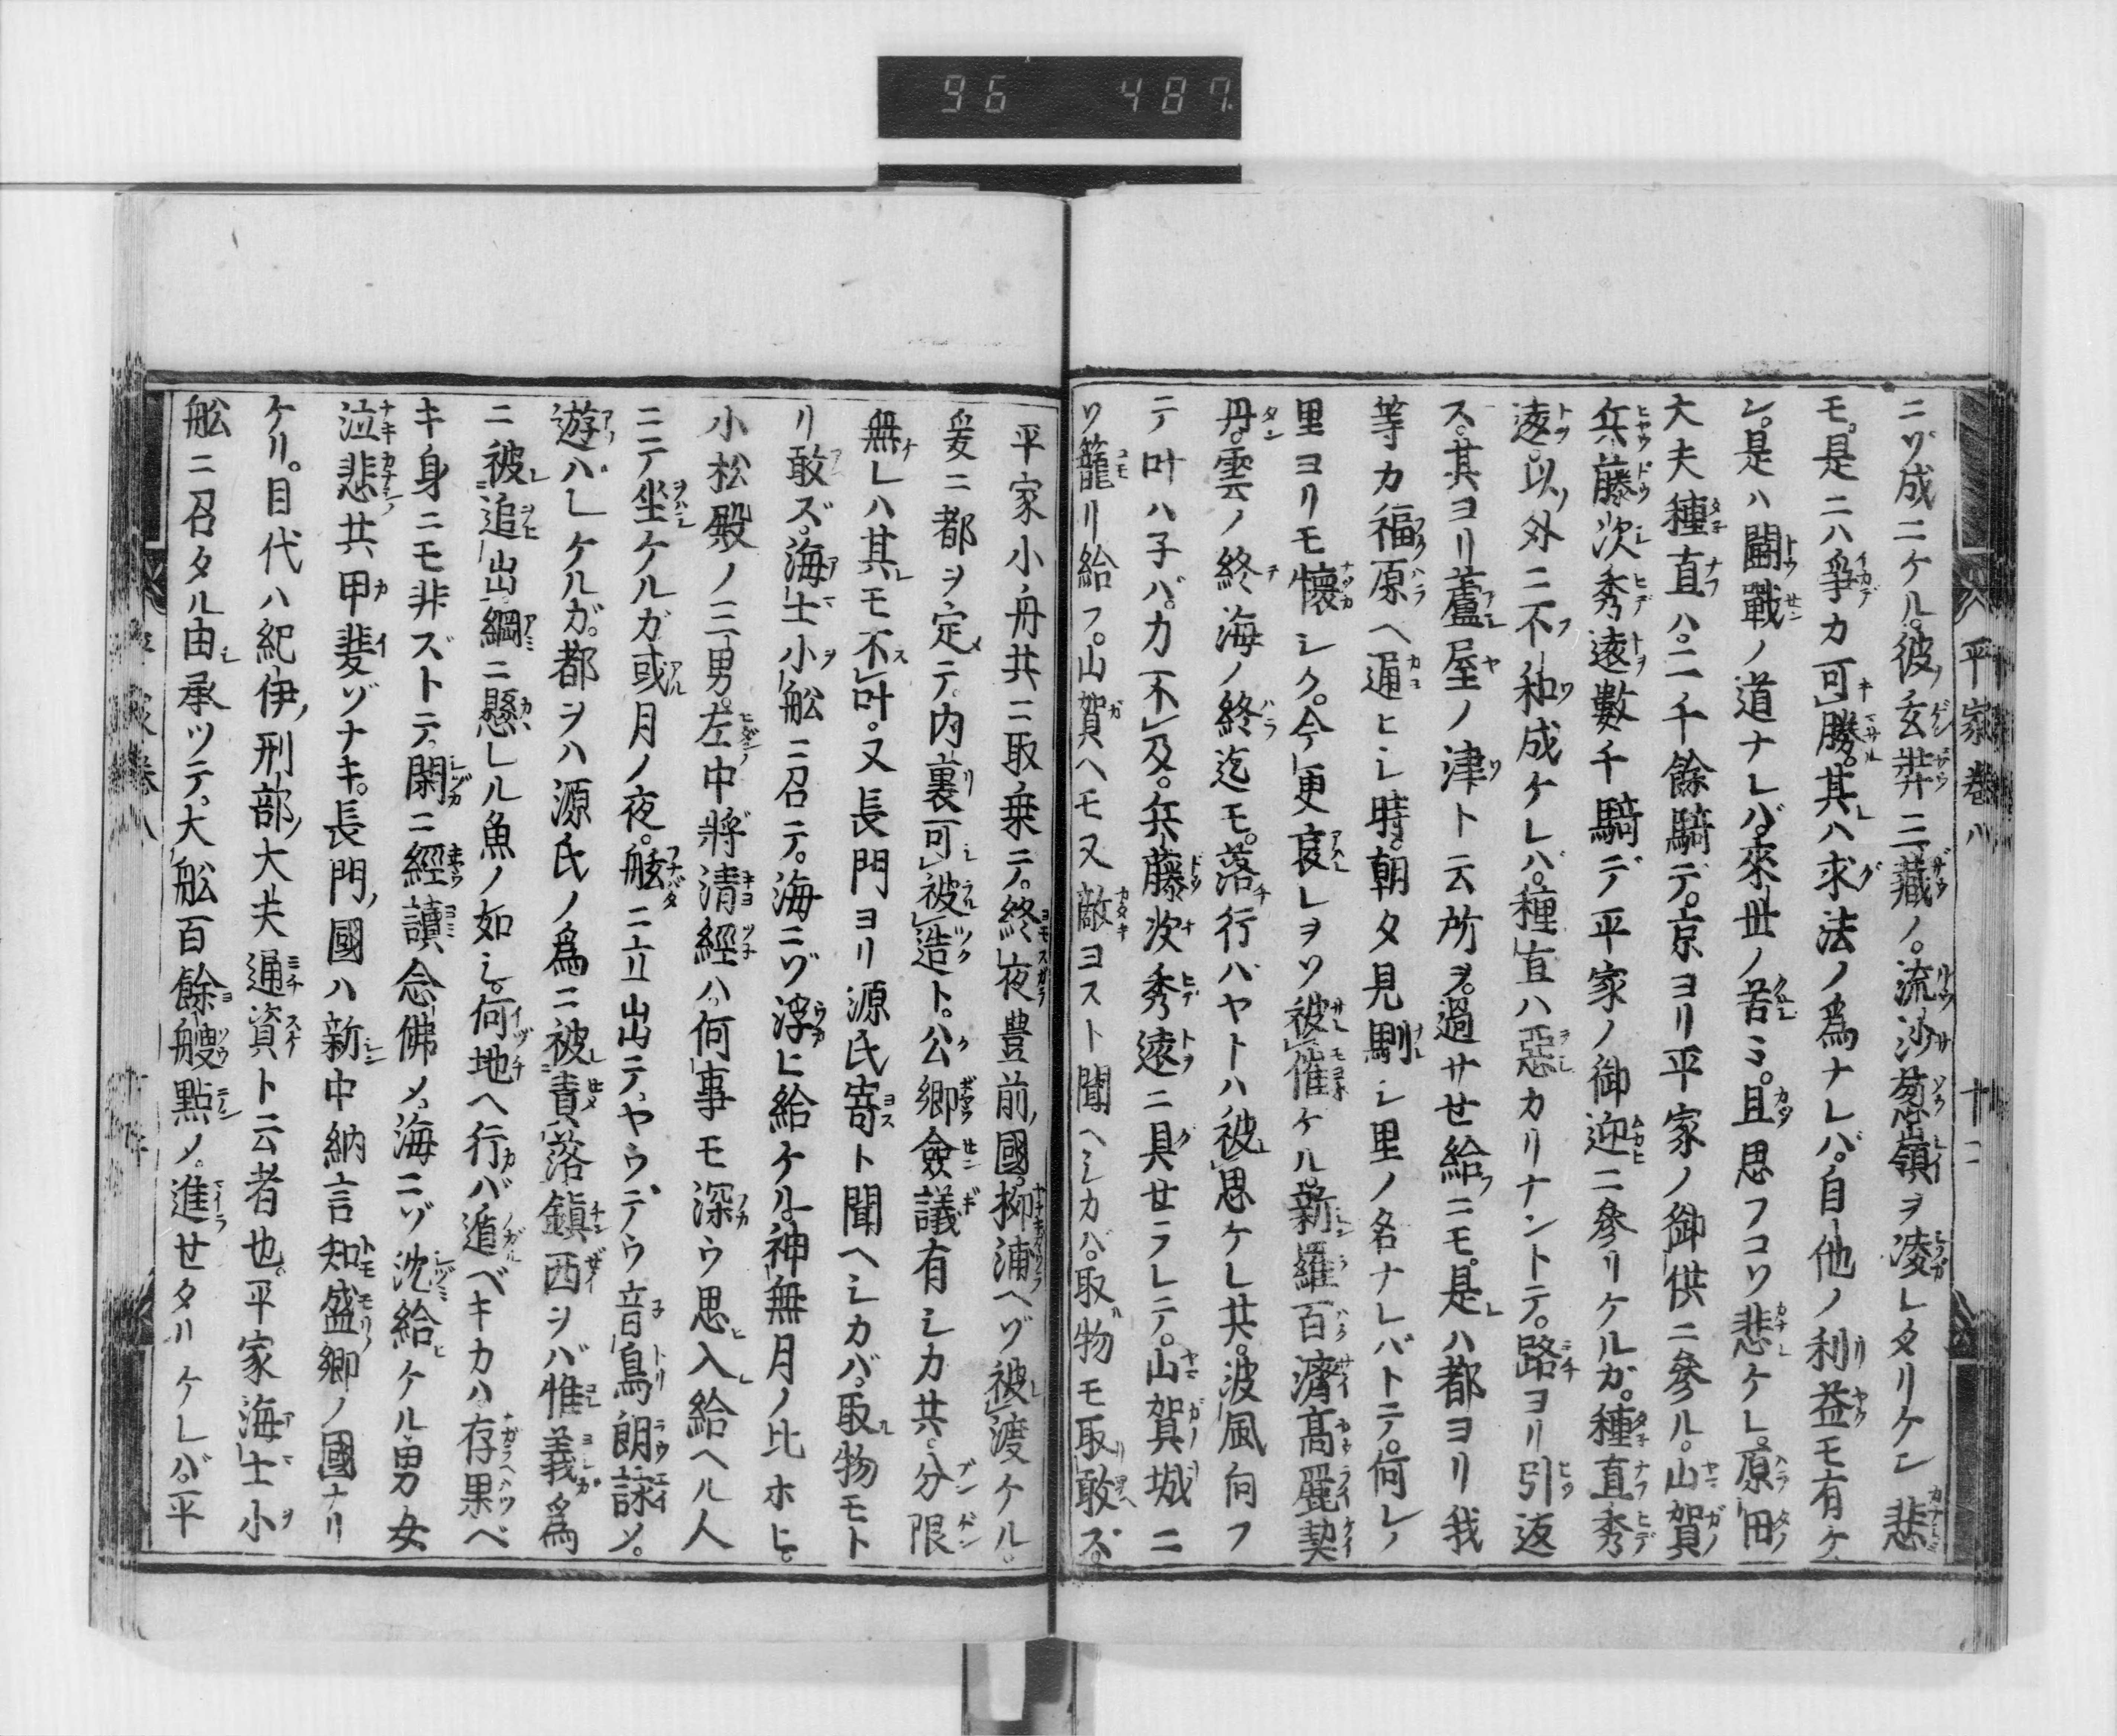 96 487
平家巻八 十二
ニゾ成ニケル。彼ノ玄弉三藏ノ。流沙葱嶺ヲ凌レタリケン悲
モ。是ニハ爭カ可勝。其レハ求法ノ爲ナレバ。自他ノ利益モ有ケ
ン。是ハ鬪戰ノ道ナレバ。來世ノ苦ミ。且思フコソ悲ケレ。原田
大夫種直ハ。二千餘騎デ。京ヨリ平家ノ御供ニ參ル。山賀
兵藤次秀遠數千騎デ平家ノ御迎ニ參リケルガ。種直秀
遠。以外ニ不和成ケレバ。種直ハ惡カリナントテ。路ヨリ引返
ス。其ヨリ蘆屋ノ津ト云所ヲ。過サセ給フニモ。是レハ都ヨリ我
等カ福原ヘ通ヒシ時。朝夕見馴シ里ノ名ナレバトテ。何レノ
里ヨリモ懷シク。今更哀レヲソ被催ケル。新羅百濟高麗契
丹。雲ノ終海ノ終迄モ。落行バヤトハ被思ケレ共。波風向フ
テ叶ハ子バ。力不及。兵藤次秀遠ニ具せラレテ。山賀城ニ
ソ籠リ給フ。山賀ヘモ又敵ヨスト聞ヘシカバ。取物モ取敢ズ。
平家小舟共ニ取乗テ。終夜豊前ノ國。柳浦ヘゾ被渡ケル。
爰ニ都ヲ定テ。内裏可被造ト。公卿僉議有シカ共。分限
無レハ其レモ不叶。又長門ヨリ源氏寄ト聞ヘシカバ。取物モト
リ敢ズ。海士小舩ニ召テ。海ニゾ浮ヒ給ケル。神無月ノ比ホヒ。
小松殿ノ三男。左中將清經ハ。何事モ深ウ思入給ヘル人
ニテ坐ケルガ或月ノ夜。舷ニ立出テ。ヤウデウ音鳥朗詠ソ。
遊バレケルガ。都ヲハ源氏ノ爲ニ被責落鎭西ヲバ惟義爲
ニ被追出。網ニ懸レル魚ノ如シ。何地ヘ行バ遁ベキカハ存果ベ
キ身ニモ非ズトテ。閑ニ經讀念佛メ。海ニゾ沈給ケル男女
泣悲共甲斐ゾナキ。長門ノ國ハ新中納言知盛卿ノ國ナリ
ケリ。目代ハ紀伊ノ刑部ノ大夫通資ト云者也。平家海士小
舩ニ召タル由承ツテ。大舩百餘艘點ノ。進せタリケレバ。平